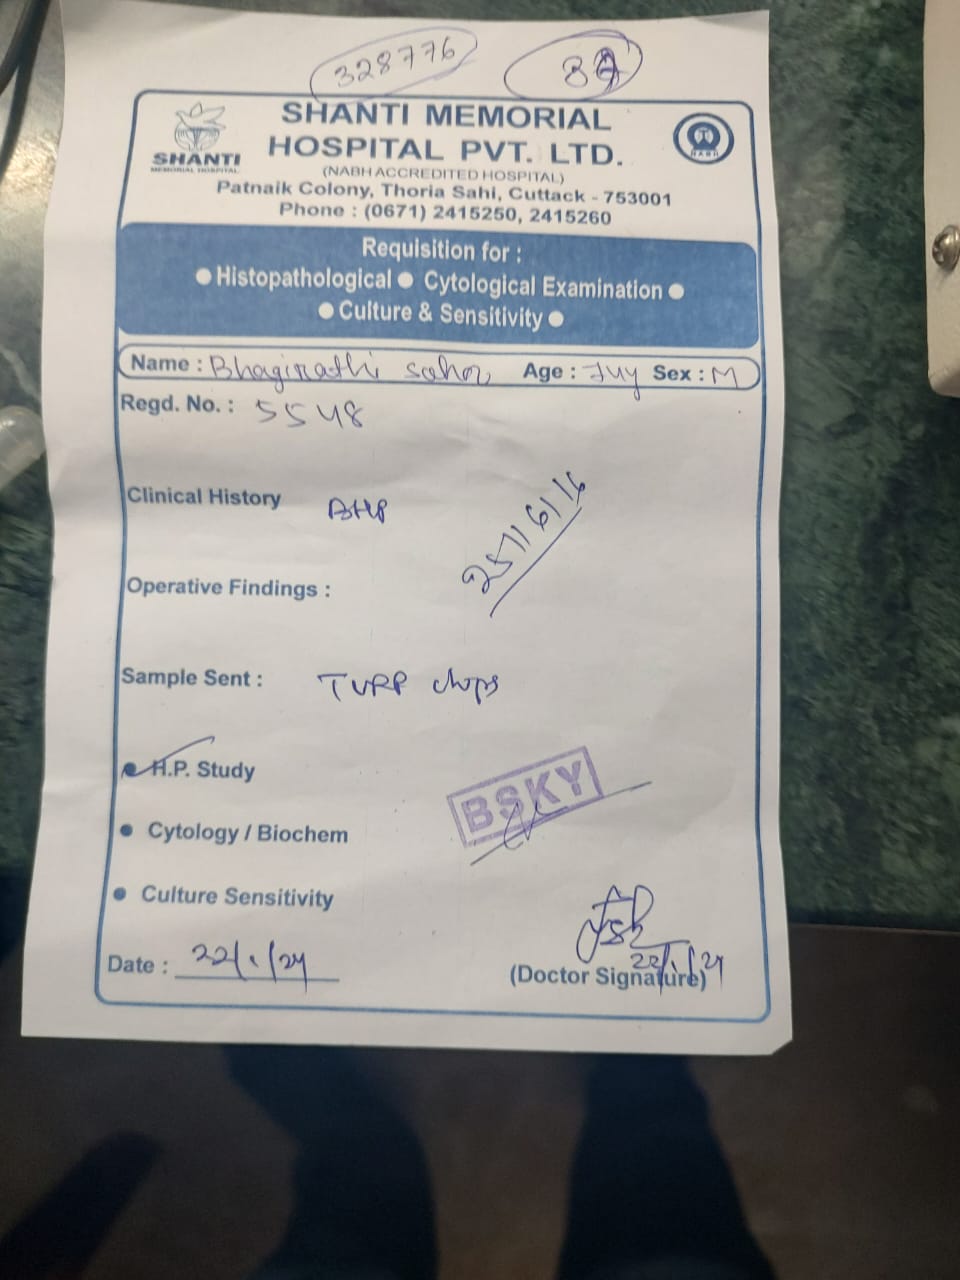 328776
SHANTI MEMORIAL
HOSPITAL PVT. LTD.
SHANTI
MEMORIAL HOSPITAL
NABH
(NABH ACCREDITED HOSPITAL)
Patnaik Colony, Thoria Sahi, Cuttack - 753001
Phone : (0671) 2415250, 2415260
Requisition for :
● Histopathological ● Cytological Examination ●
● Culture & Sensitivity ●
Name : Bhagirathi Age : Sex : M
Regd. No. : 5548
Clinical History BHP
Operative Findings :
Sample Sent : TURP chips
● H.P. Study
BSKY
● Cytology / Biochem
● Culture Sensitivity
Date : 22/1/24
22/1/24
(Doctor Signature)